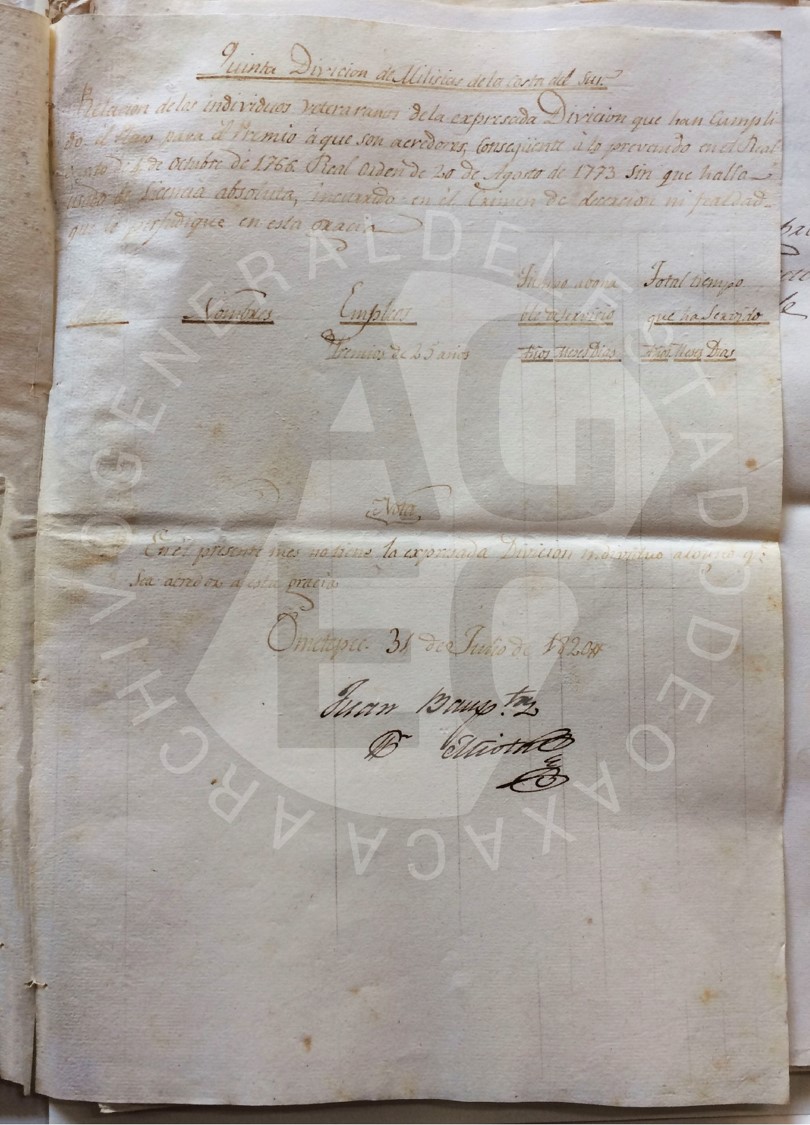 Quinta Divicion de Milicias de la Costa del Sur
Relacion de los individuos veteraranos de la expresada Divicion que han Cumpli
do el Plazo para el Premio à que son acredores, Conseqüente à lo prevenido en el Real
de 4 de Octubre de 1766 Real orden de 20 de Agosto de 1773 sin que halla
usado de Licencia absoluta, incurrido en el Crimen de decercion ni fealdad
que le perjudique en esta gracia
Nombres Empleos Tiempo abona Total tiempo
ble ta servicio que ha Servido
Premios de 25 años Años Meses Dias Años Meses Dias
Nota
En el presente mes no tiene la expresada Divicion individuo alguno q.e
sea acredor à esta gracia
Ometepec 31 de de 1820
Juan Baup.ta
ARCHIVO GENERAL DEL ESTADO DE OAXACA
AG
EO